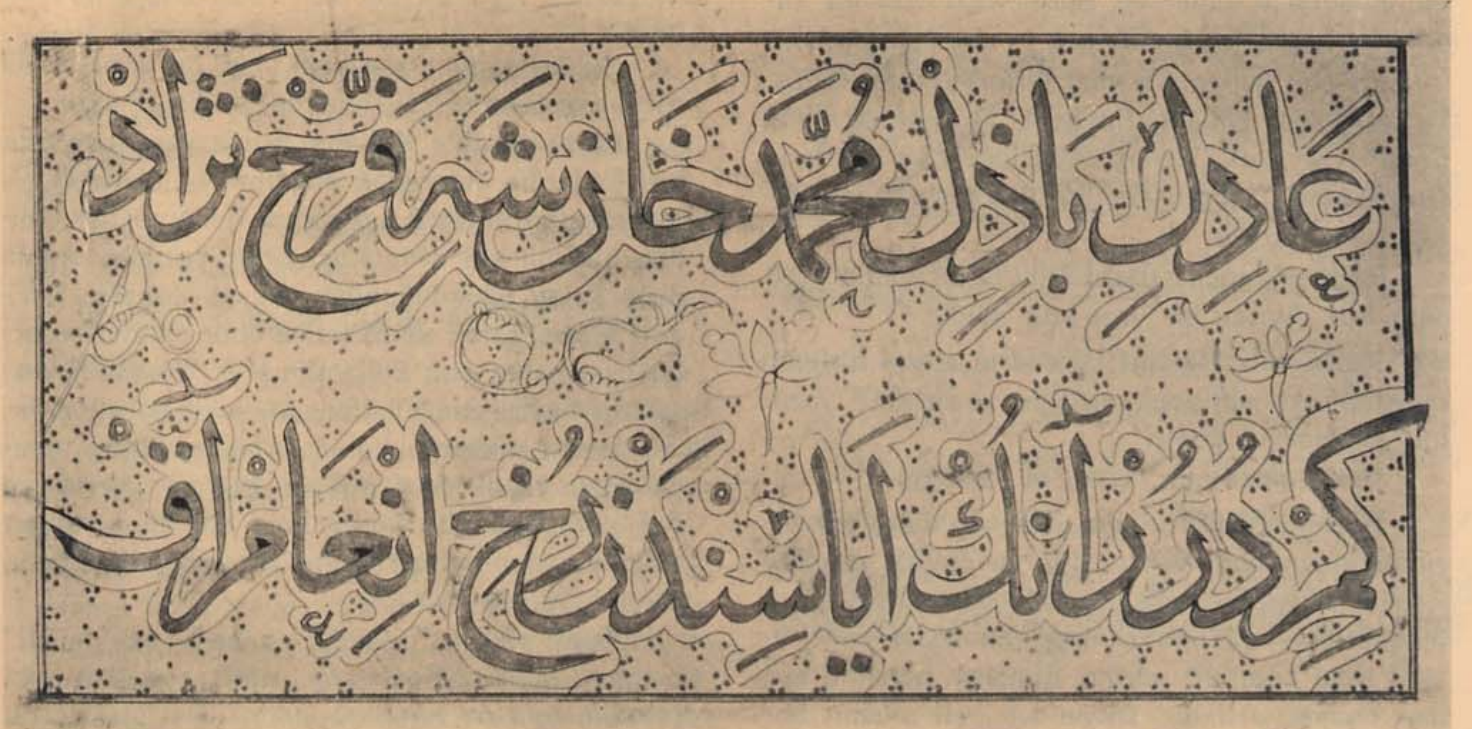 عَادِلِ بَاذِلْ مُحَمَّدْ خَانِ شَهِ فَرَّخْ نَژَادْ
كِمْ دُرُرْ آنُكْ اَيَاسِنْدَنْ رُخِ اِنْعَامْ آقْ